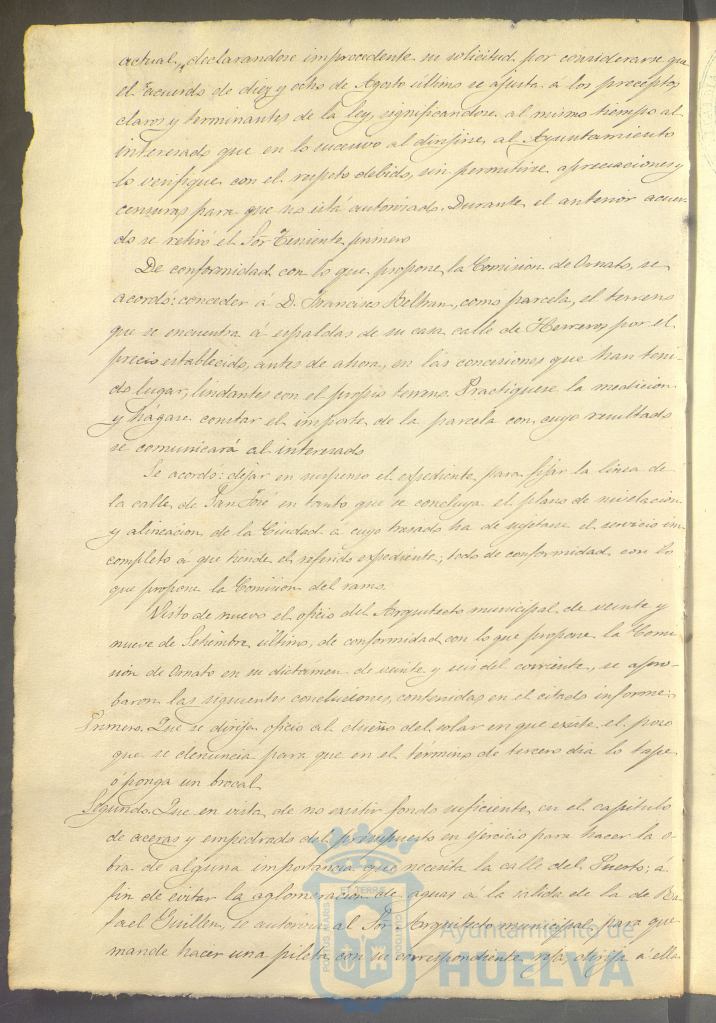 actual, declarandose improcedente su solicitud por considerarse que
el acuerdo de diez y ocho de Agosto último se ajusta á los preceptos
claros y terminantes de la ley, significandose al mismo tiempo al
interesado que en lo sucesivo al dirijirse al Ayuntamiento
lo verifique con el respeto debido, sin permitirse apreciaciones y
censuras para que no está autorizado. Durante el anterior acuer-
do se retiró el Sor Teniente primero
De conformidad con lo que propone la Comision de Ornato, se
acordó: conceder á D. Francisco Beltran, como parcela, el terreno
que se encuentra á espaldas de su casa calle de Herreros, por el
precio establecido, antes de ahora, en las concesiones que han teni-
do lugar, lindantes con el propio terreno. Practiquese la medicion
y hágase constar el importe de la parcela con cuyo resultado
se comunicará al interesado
Se acordó: dejar en suspenso el expediente para fijar la línea de
la calle de San José en tanto que se concluya el plano de nivelacion
y alineacion de la Ciudad á cuyo trasado ha de sujetarse el servicio in-
completo á que tiende el referido expediente; todo de conformidad con lo
que propone la Comision del ramo.
Visto de nuevo el oficio del Arquitecto municipal de veinte y
nueve de Setiembre último, de conformidad con lo que propone la Comi-
sion de Ornato en su dictámen de veinte y seis del corriente, se apro-
baron las siguientes conclusiones, contenidas en el citado informe:
Primero. Que se dirija oficio al dueño del solar en que existe el pozo
que se denuncia para que en el término de tercero dia lo tape
ó ponga un brocal
Segundo. Que en vista de no existir fondo suficiente en el capitulo
de aceras y empedrado del presupuesto en ejercicio para hacer la o-
bra de alguna importancia que necesita la calle del Puerto; á
fin de evitar la aglomeracion de aguas á la salida de la de Ra-
fael Guillen, se autorice al Sor Arquitecto municipal para que
mande hacer una pileta con su correspondiente reja dirija á ella
PORTUS MARIS ET TERRAE CUSTODIA
Ayuntamiento de
HUELVA